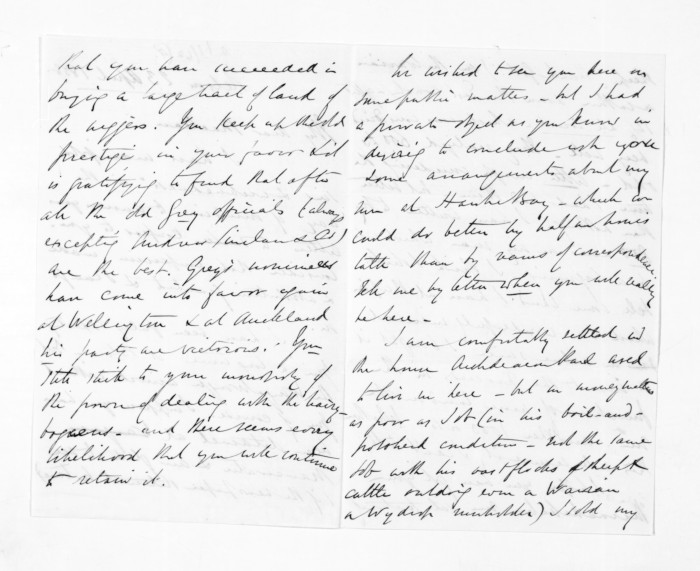 that you have succeeded in
buying a large tract of land of
the niggers. You keep up the old
prestige in your favor & it
is gratifying to find that after
all the old Grey officials (always
excepting Andrew Sinclair & Co)
are the best. Grey's nominees
have come into favor again
at Wellington & at Auckland
his party are victorious. You
still stick to your monopoly of
the power of dealing with the
and there seems every
likelihood that you will continue
to retain it.
he wished to see you here on
some public matters - but I had
a private object as you know in
desiring to conclude with you
some arrangements about my
run at Hawke Bay - which we
could do better by half an hour's
talk than by reams of correspondence
Tell me by letter when you will really
be here -
I am comfortably settled in
the house Archdeacon Hard used
to live in here - but in money matters
as poor as Job (in his boil-and-
potsherd condition - not the same
Job with his vast flocks of sheep &
cattle outdoing even a
a Wydrop runholder) I sold my